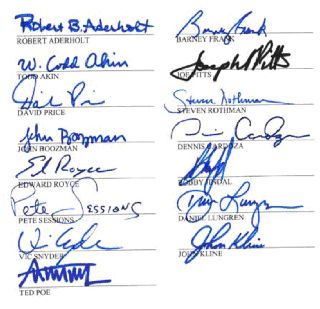 Robert B. Aderholt
ROBERT ADERHOLT
W. Todd Akin
TODD AKIN
DAVID PRICE
John Boozman
JOHN BOOZMAN
Ed Royce
EDWARD ROYCE
Pete Sessions
PETE SESSIONS
VIC SNYDER
TED POE
Barney Frank
BARNEY FRANK
Joseph R Pitts
JOE PITTS
Steven Rothman
STEVEN ROTHMAN
DENNIS CARDOZA
BOBBY JINDAL
Dan Lungren
DANIEL LUNGREN
John Kline
JOHN KLINE